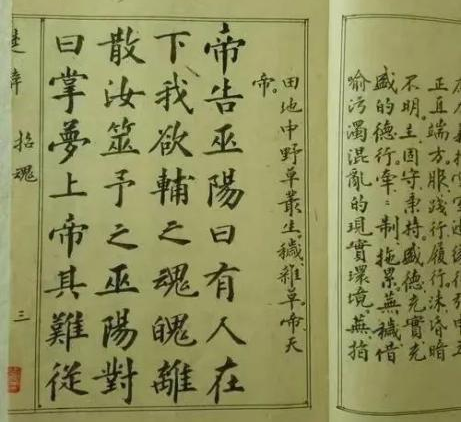 正直端方。服践行履行。沬昏暗
不明。主固守秉持。盛德充實光
盛的德行。牽：制，拖累。蕪穢借
喻污濁混亂的現實環境。蕪指
田地中野草叢生。穢雜草。帝天
帝。
帝告巫陽曰有人在
下我欲輔之魂魄離
散汝筮予之巫陽對
曰掌夢上帝其難從
楚辭 招魂 三